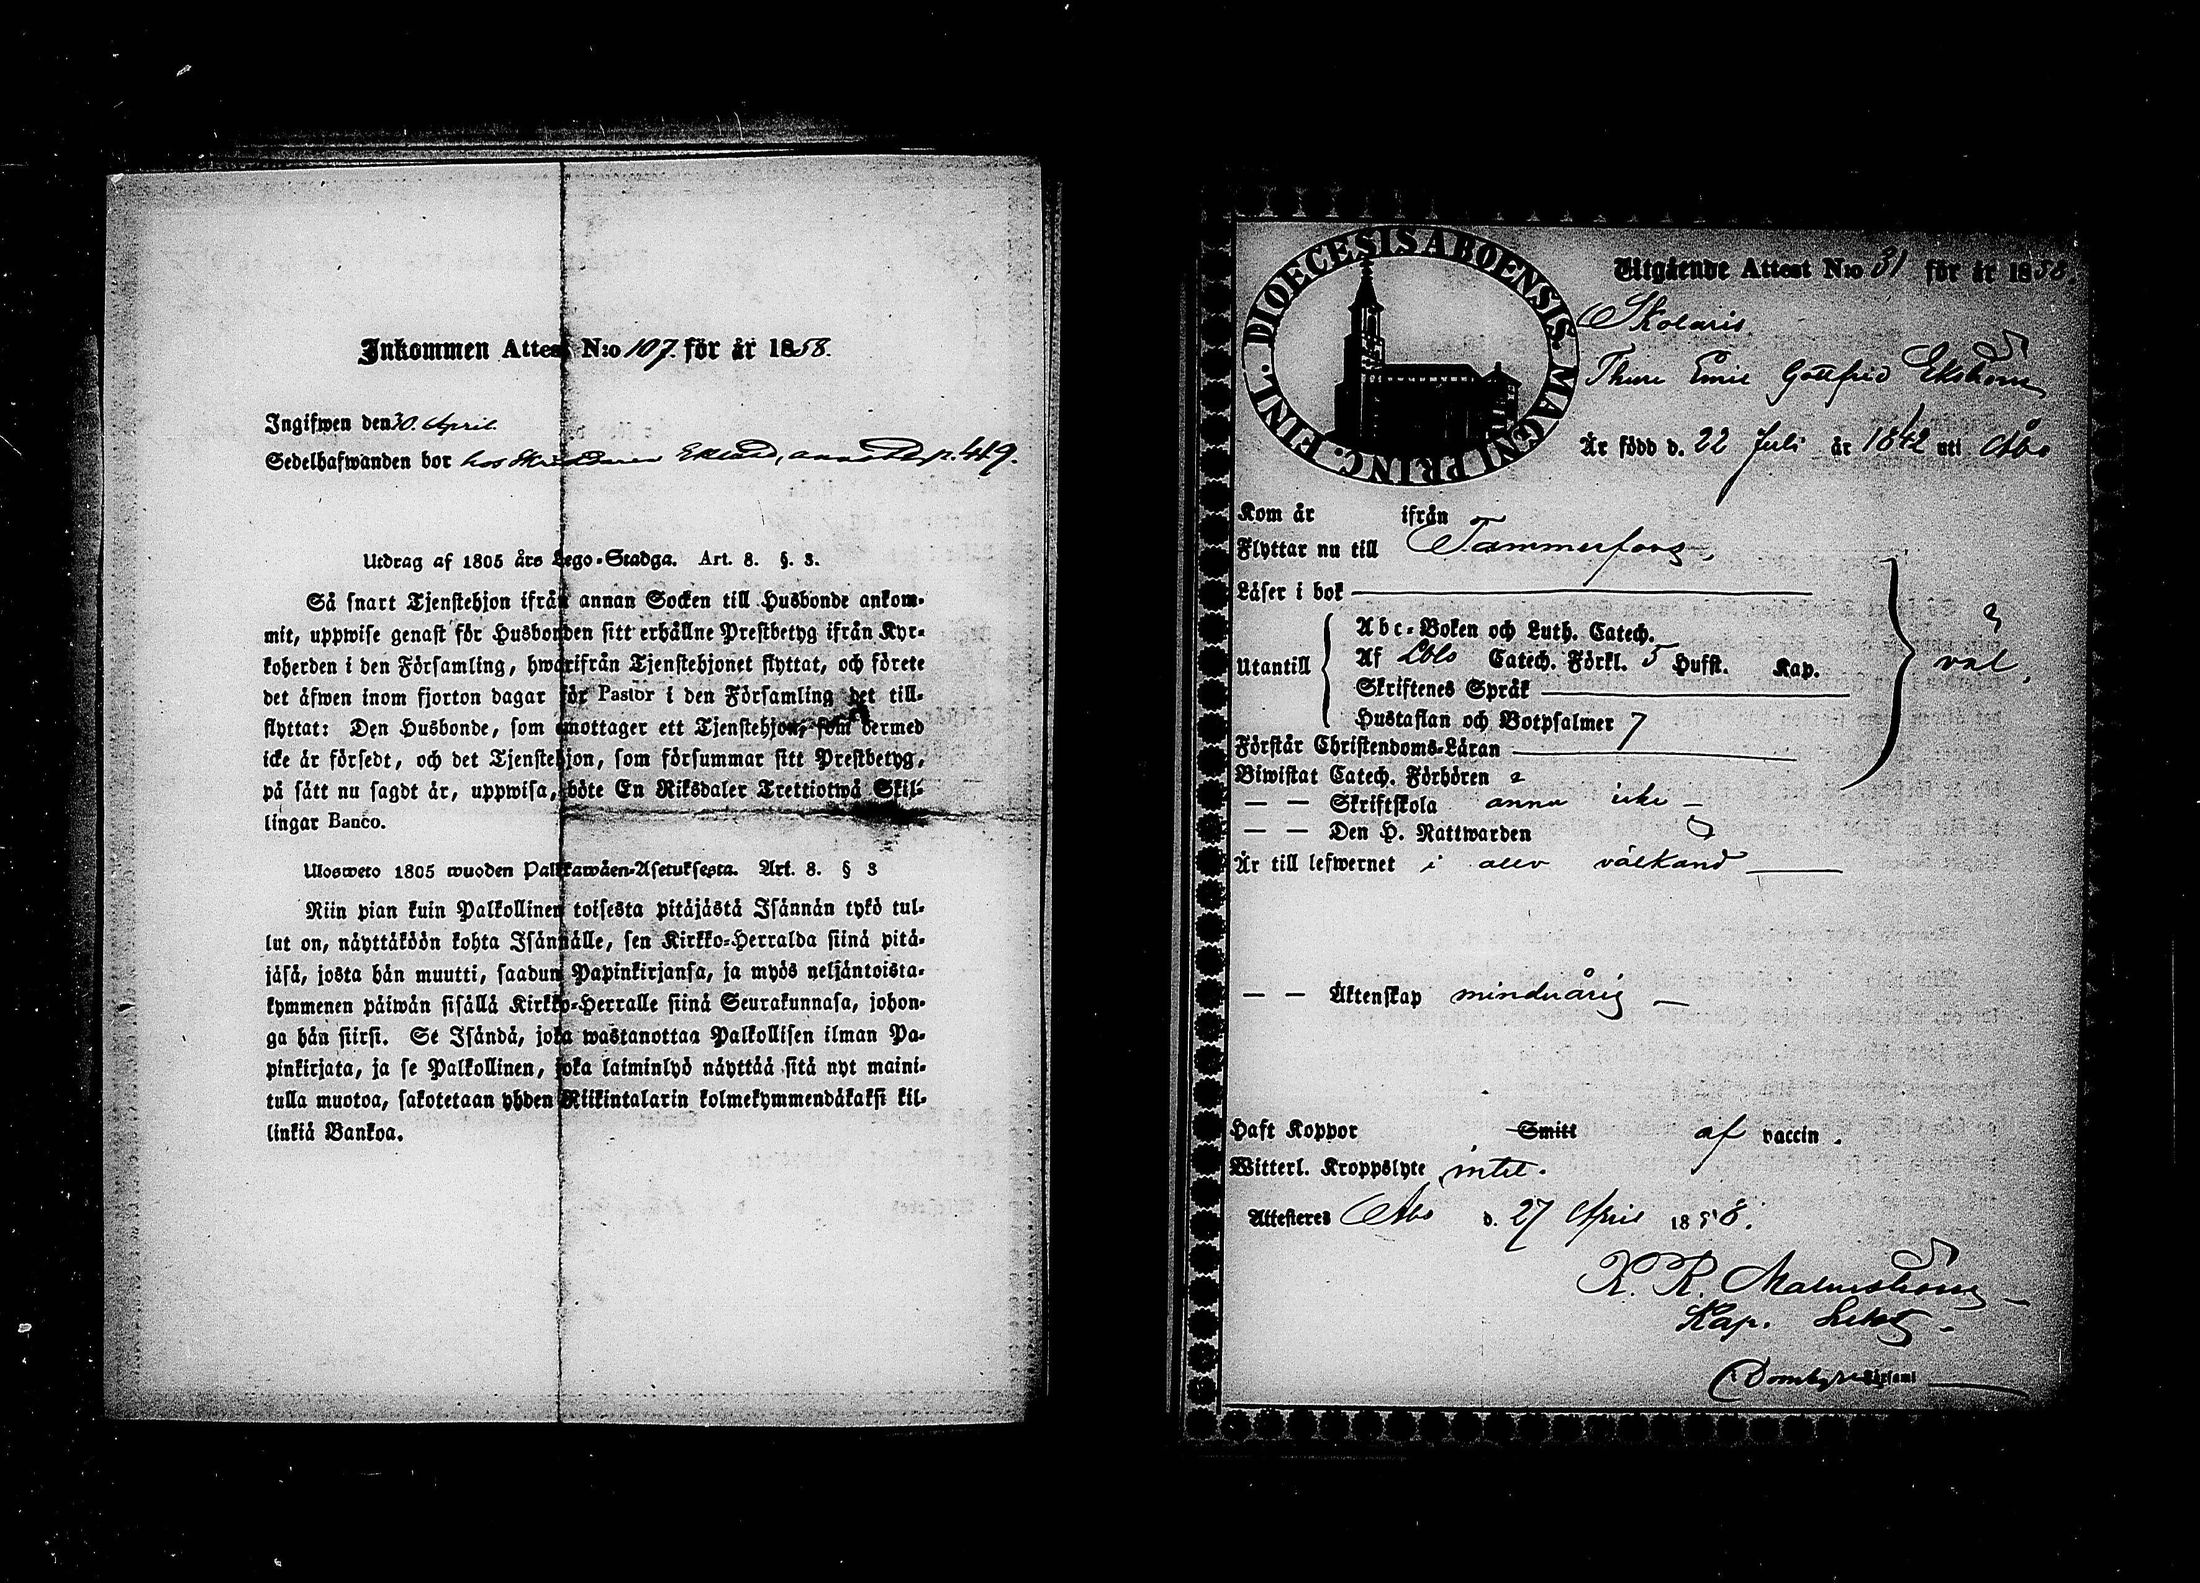 Inkommen Attest N:o 107. för år 1858.
Ingifwen den 30. April.
Sedelhafwanden bor hos Eklund, pag. 449.
Utdrag af 1805 års Lego-Stadga. Art. 8. §. 3.
Så snart Tjenstehjon ifrån annan Socken till Husbonde ankom-
mit, uppwise genast för Husbonden sitt erhållne Prestbetyg ifrån Kyr-
koherden i den Församling, hwarifrån Tjenstehjonet flyttat, och förete
det äfwen inom fjorton dagar för Pastor i den Församling det till-
flyttat: Den Husbonde, som emottager ett Tjenstehjon, som dermed
icke är försedt, och det Tjenstehjon, som försummar sitt Prestbetyg,
på sätt nu sagdt är, uppwisa, böte En Riksdaler Trettiotwå Skil-
lingar Banco.
Ulosweto 1805 wuoden Palkkawäen-Asetuksesta. Art. 8. § 3
Niin pian kuin Palkollinen toisesta pitäjästä Isännän tykö tul-
lut on, näyttäköön kohta Isännälle, sen Kirkko-Herralda siinä pitä-
jäsä, josta hän muutti, saadun Papinkirjansa, ja myös neljäntoista-
kymmenen päiwän sisällä Kirkko-Herralle siinä Seurakunnasa, johon-
ga hän siirsi. Se Isändä, joka wastanottaa Palkollisen ilman Pa-
pinkirjata, ja se Palkollinen, joka laiminlyö näyttää sitä nyt maini-
tulla muotoa, sakotetaan yhden Riikintalarin kolmekymmendäkaksi kil-
linkiä Bankoa.
DIOECESIS ABOENSIS. MAGNI PRINC. FINL.
Utgående Attest N:o 31 för år 1858.
Skolaris
Thure Emil Gottfrid Ekström
Är född d. 22 Juli år 1842 uti Åbo
Kom år ifrån
Flyttar nu till Tammerfors,
Läser i bok
Utantill
Abc-Boken och Luth. Catech.
Af Lbls Catech. Förkl. 5 Hufst. Kap.
Skriftenes Språk
Hustaflan och Botpsalmer 7
väl.
Förstår Christendoms-Läran
Biwistat Catech. Förhören
— — Skriftskola ännu icke —
— — Den H. Nattwarden
Är till lefwernet i allo välkänd
— — Äktenskap minderårig —
Haft Koppor Smitt af vaccin.
Witterl. Kroppslyte intet.
Attesteres Åbo d. 27 April 1858.
K. R. Malmström
Kap.
Domkyrko Församl